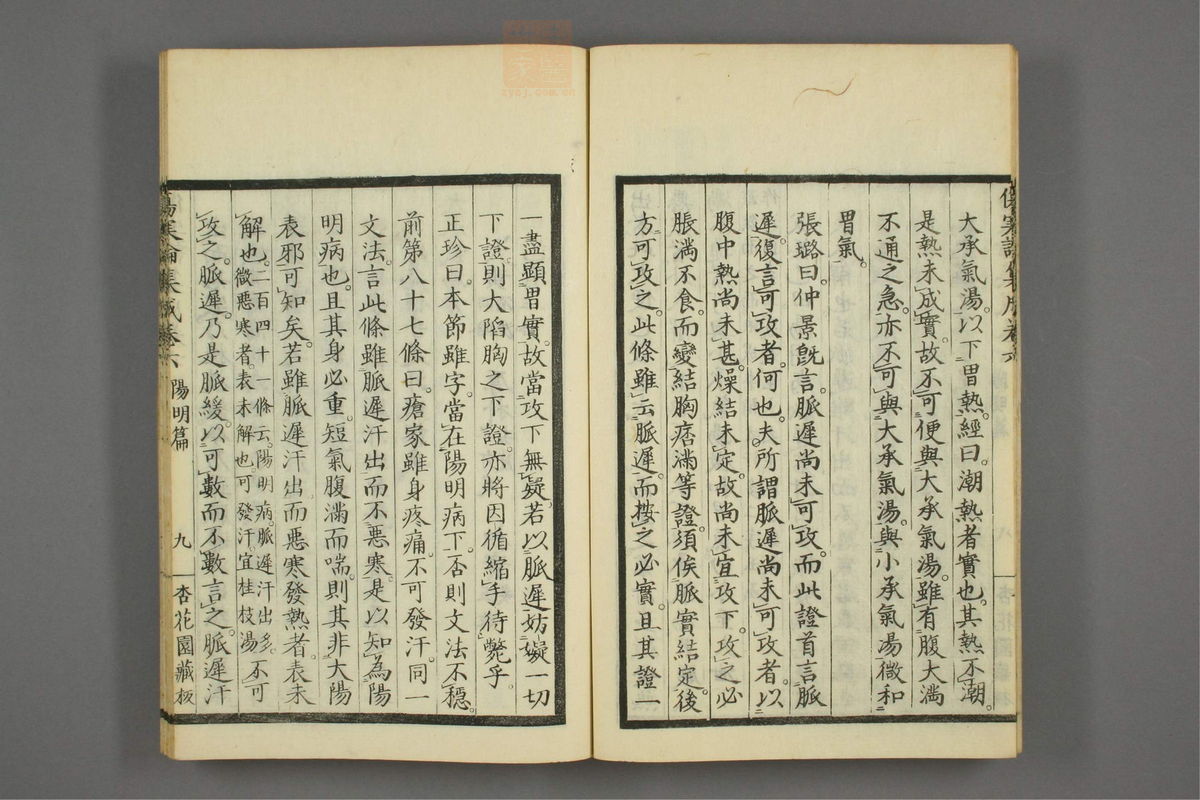 傷寒論集成卷六
大承氣湯。以下胃熱。經曰。潮熱者實也。其熱不潮。
是熱未成實。故不可便與大承氣湯。雖有腹大滿
不通之急。亦不可與大承氣湯。與小承氣湯微和
胃氣。
張璐曰。仲景旣言。脈遲尚未可攻。而此證首言脈
遲。復言可攻者。何也。夫所謂脈遲尚未可攻者。以
腹中熱尚未甚。燥結未定。故尚未宜攻下。攻之必
脹滿不食。而變結胸痞滿等證。須俟脈實結定後
方可攻之。此條雖云脈遲。而按之必實。且其證一
一盡顯胃實。故當攻下無疑。若以脈遲妨礙一切
下證。則大陷胸之下證。亦將因循縮手待斃乎。
正珍曰。本節雖字。當在陽明病下。否則文法不穩。
前第八十七條曰。瘡家雖身疼痛。不可發汗。同一
文法。言此條雖脈遲汗出而不惡寒。是以知爲陽
明病也。且其身必重。短氣腹滿而喘。則其非大陽
表邪可知矣。若雖脈遲汗出而惡寒發熱者。表未
解也。二百四十一條云。陽明病。脈遲汗出多。微惡寒者。表未解也。可發汗。宜桂枝湯。不可
攻之。脈遲。乃是脈緩。以可數而不數言之。脈遲汗
傷寒論集成卷六 陽明篇 九 杏花園藏板
zycj.com.cn